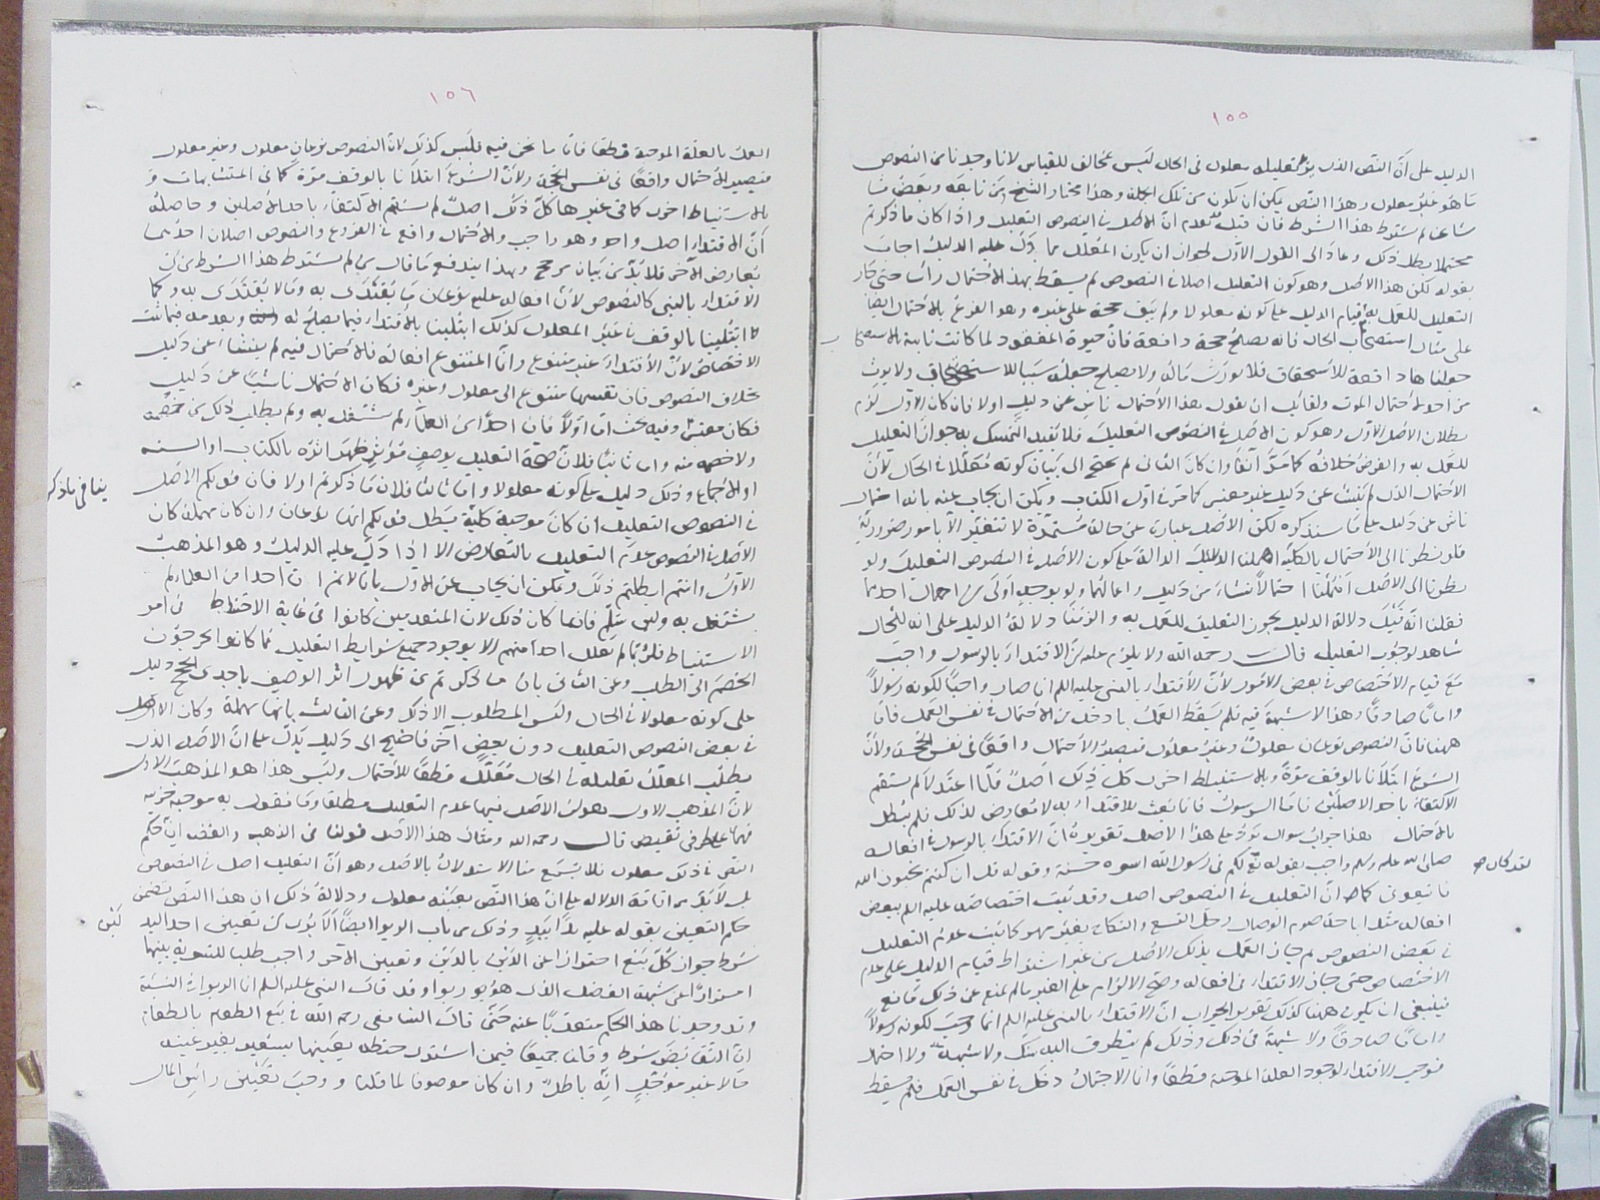 ١٥٥
الدليل على أن النص الذي يريد تعليله معلول في الحال ليس بمخالف للقياس لأنا وجدنا من النصوص
ما هو غير معلول وهذا النص يمكن ان يكون من تلك الجملة وهذا مختار الشيخ ومن تابعه وبعض مشا
يخنا لم يشترط هذا الشرط فان قيل تقدم ان الاصل في النصوص التعليل واذا كان ما ذكرتم
محتملا بطل ذلك وعاد الى القول الاول لجواز ان يكون المعلل مما دل عليه الدليل اجاب
بقوله لكن هذا الاصل وهو كون التعليل اصلا في النصوص لم يسقط بهذا الاحتمال رأسا حتى جاز
التعليل للعمل به قبل قيام الدليل على كونه معلولا ولم يبق حجة على غيره وهو الفرع بالاحتمال ايضا
على مثال استصحاب الحال فانه يصلح حجة دافعة فان حيوة المفقود لما كانت ثابتة بالاستصحا
ب
جعلناها دافعة للاستحقاق فلا يورث ماله ولا يصلح جعله سببا للاستحقاق ولا يرث
من احد لاحتمال الموت ولقائل ان يقول هذا الاحتمال ناش عن دليل اولا فان كان الاول لزم
بطلان الاصل الاول وهو كون الاصل في النصوص التعليل فلا يفيد التمسك به جواز التعليل
للعمل به والفرض خلافه كما مر آنفا وان كان الثاني لم يحتج الى بيان كونه معللا في الحال لأن
الاحتمال الذي لم ينشأ عن دليل غير معتبر كما مر في اول الكتاب ويمكن ان يجاب عنه بانه احتمال
ناش عن دليل على ما سنذكره لكن الاصل عبارة عن حالة مستمرة لا تتغير الا بامور ضرورية
فلو نظرنا الى الاحتمال بالكلية اهملنا الدلايل الدالة على كون الاصل في النصوص التعليل ولو
نظرنا الى الاصل اهملنا احتمالا نشأ من دليل واعمالهما ولو بوجه اولى من اهمال احدهما
فقلنا انه قبل دلالة الدليل يجوز التعليل للعمل به والزمنا دلالة الدليل على انه للحال
شاهد لوجوب التعليل قال رحمه الله ولا يلزم عليه ان الاقتداء بالرسول واجب
مع قيام الاختصاص في بعض الامور لأن الاقتداء بالنبي عليه السلام انما صار واجبا لكونه رسولا
واماما صادقا وهذا لا شبهة فيه فلم يسقط العمل بما دخل من الاحتمال في نفس العمل فاما
ههنا فان النصوص نوعان معلول وغير معلول فيصير الاحتمال واقعا في نفس الحجة ولأن
الشرع ابتلانا بالوقف مرة وبالاستنباط اخرى كل ذلك اصل فلما اعتدلا لم يستقم
الاكتفاء باحد الاصلين فاما الرسول فانما بعث للاقتداء به لا معارض لذلك فلم يبطل
بالاحتمال هذا جواب سوال يرد على هذا الاصل تقريره ان الاقتداء بالرسول في افعاله
صلى الله عليه وسلم واجب بقوله تع لكم في رسول الله اسوة حسنة وقوله قل ان كنتم تحبون الله
لقد كان صح
فاتبعوني كما ان التعليل في النصوص اصل وقد ثبت اختصاصه عليه السلم ببعض
افعاله مثل اباحة صوم الوصال وحل التسع والنكاح بغير مهر كما ثبت عدم التعليل
في بعض النصوص ثم جاز العمل بذلك الاصل من غير اشتراط قيام الدليل على عدم
الاختصاص حتى جاز الاقتداء في افعاله وصح الالزام على الغير ما لم يمنع عن ذلك مانع
فينبغي ان يكون ههنا كذلك تقرير الجواب ان الاقتداء بالنبي عليه السلم انما وجب لكونه رسولا
واماما صادقا ولا شبهة في ذلك وذلك لم يتطرق اليه شك ولا شبهة ولا احتمال
فوجب الاقتداء لوجود العلة الموجبة قطعا وانما الاحتمال دخل في نفس العمل فلم يسقط
١٥٦
العمل بالعلة الموجبة قطعا فاما ما نحن فيه فليس كذلك لان النصوص نوعان معلول وغير معلول
فيصير الاحتمال واقعا في نفس الحجة ولأن الشرع ابتلانا بالوقف مرة كما في المتشابهات و
بالاستنباط اخرى كما في غيرها كل ذلك اصل لم يستقم الاكتفاء باحد الاصلين وحاصله
أن الاقتداء اصل واحد وهو واجب والاحتمال واقع في الفروع والنصوص اصلان احدهما
يعارض الآخر فلا بد من بيان مرجح وبهذا يندفع ما قال من لم يشترط هذا الشرط من أن
الاقتداء بالنبي كالنصوص لأن افعاله عليه نوعان ما يقتدى به وما لا يقتدى به وكما
ابتلينا بالوقف في غير المعلول كذلك ابتلينا بالاقتداء فيما يصلح له وبعدمه فيما ثبت
الاختصاص لأن الاقتداء غير متنوع وانما المتنوع افعاله فالاحتمال فيه لم ينشأ عن دليل
بخلاف النصوص فان نفسها متنوع الى معلول وغيره فكان الاحتمال ناشيا عن دليل
فكان معتبرا وفيه بحث اما اولا فان احدا من العلماء لم يشتغل به ولم يطلب ذلك من خصمه
ولا خصمه منه واما ثانيا فلان صحة التعليل بوصف مؤثر ظهر اثره بالكتاب او السنه
او الاجماع وذلك دليل على كونه معلولا واما ثالثا فلان ما ذكرتم اولا فان قولكم الاصل
ينافي ما ذكر
في النصوص التعليل ان كان موجبة كلية يبطل قولكم انها نوعان وان كان مهملة كان
الاصل في النصوص عدم التعليل بالتعارض الا اذا دل عليه الدليل وهو المذهب
الاول وانتم ابطلتم ذلك ويمكن ان يجاب عن الاول بانا لانم ان احدا من العلماء لم
يشتغل به ولئن سلم فانما كان ذلك لان المتقدمين كانوا في غاية الاحتياط في امر
الاستنباط فلربما لم يعلل احد منهم الا بوجود جميع شرايط التعليل فما كانوا محوجون
الخصم الى الطلب وعن الثاني بان ما ذكرتم من ظهور اثر الوصف باحدى الحجج دليل
على كونه معلولا في الحال وليس المطلوب الا ذلك وعن الثالث بانها مهملة وكان الاصل
في بعض النصوص التعليل دون بعض آخر فاحتيج الى دليل يدل على ان الاصل الذي
يطلب المعلل تعليله في الحال معلل قطعا للاحتمال وليس هذا هو المذهب الاول
لان المذهب الاول يقول الاصل فيها عدم التعليل مطلقا وما نقول به موجبة جزيه
فهما على طرفي نقيض قال رحمه الله ومثال هذا الاصل قولنا في الذهب والفضة ان حكم
النص في ذلك معلول فلا يسمع منا الاستدلال بالاصل وهو أن التعليل اصل في النصوص
بل لا بد من اقامة الدلالة على ان هذا النص بعينه معلول ودلالة ذلك ان هذا النص تضمن
حكم التعيين بقوله عليه يدا بيد وذلك من باب الربوا ايضا الا يرى أن تعيين احد البد
لين
شرط جواز كل بيع احترازا عن الدين بالدين وتعيين الآخر واجب طلبا للتسوية بينهما
احترازا عن شبهة الفضل الذي هو ربوا وقد قال النبي عليه السلم انما الربوا في النسيئة
وقد وجدنا هذا الحكم متعديا عنه حتى قال الشافعي رحمه الله في بيع الطعام بالطعام
ان التقابض شرط وقلنا جميعا فيمن اشترى حنطة بعينها بشعير بغير عينه
حالا غير مؤجل انه باطل وان كان موصوفا لما قلنا ووجب تعيين رأس المال